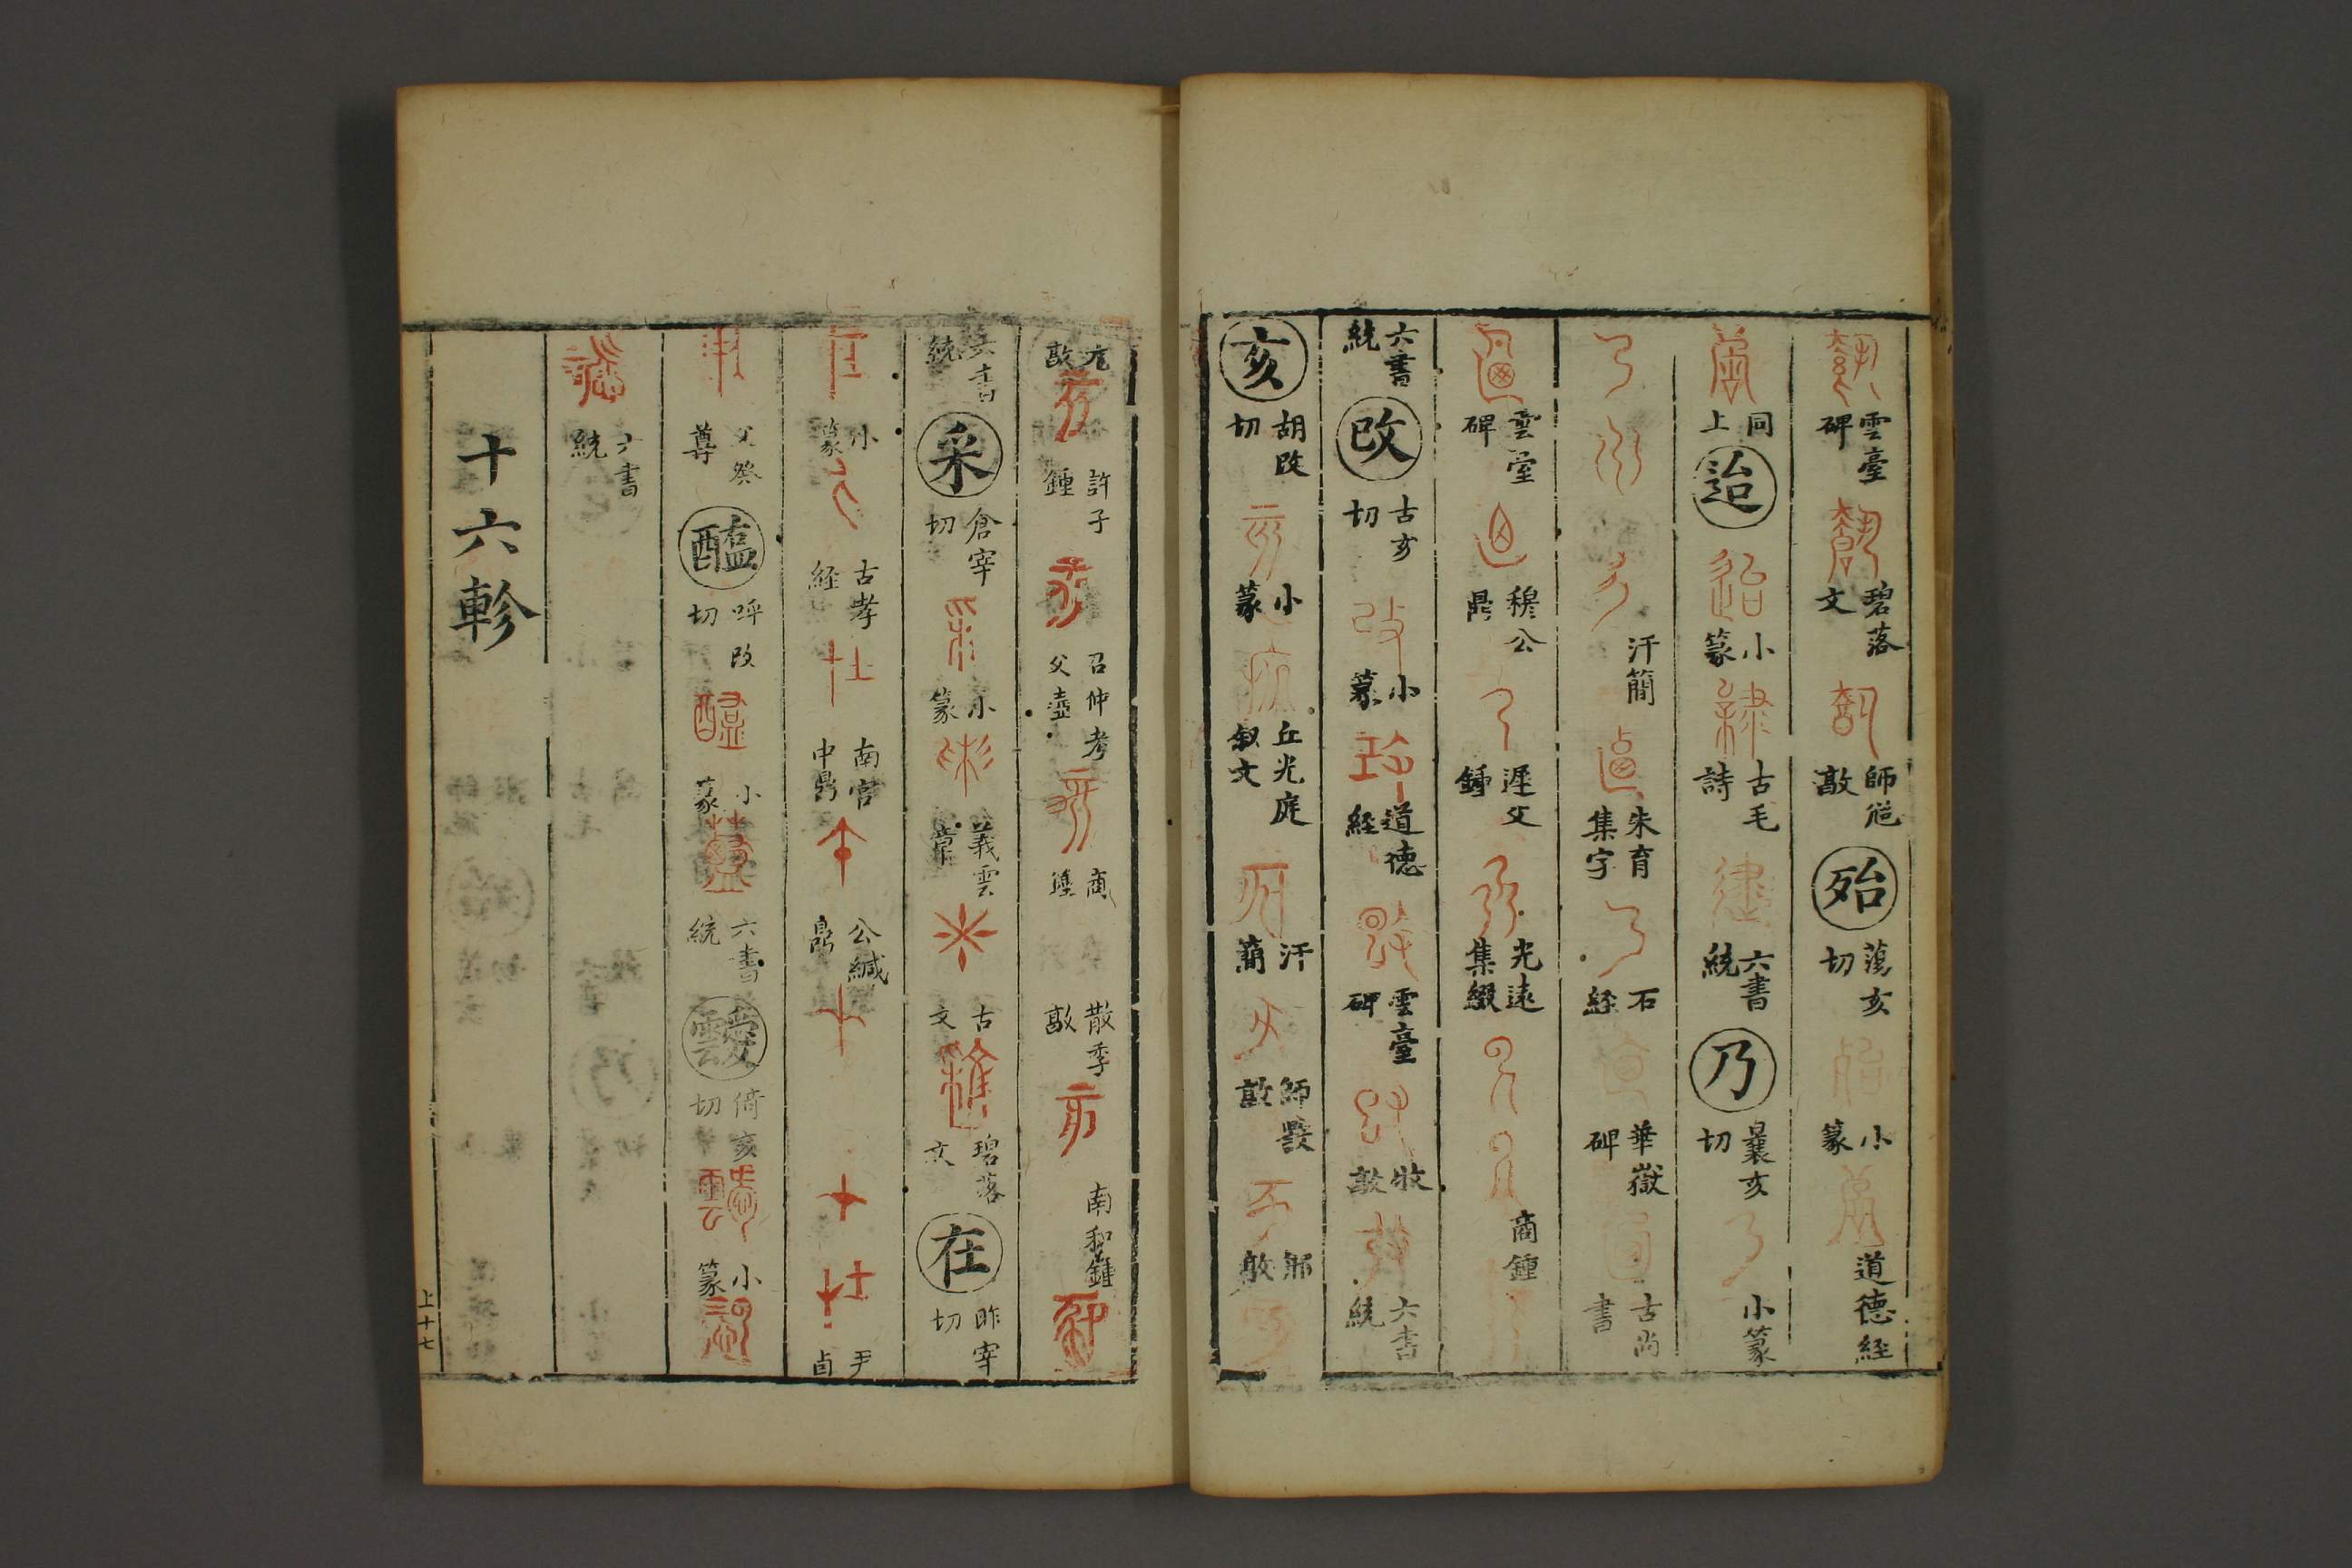 雲臺碑 碧落文 師𡩜敦 殆 蕩亥切 小篆 道德経
同上 迨 小篆 古毛詩 六書統 乃 曩亥切 小篆
汗簡 朱育集字 石経 華嶽碑 古尚書
雲臺碑 穆公鼎 遲父鍾 光遠集綴 商鍾
六書統 改 古亥切 小篆 道德経 雲臺碑 牧敦 六書統
亥 胡改切 小篆 丘光庭叙文 汗簡 師敦 敦
敦 許子鍾 召仲考父壺 商 散季敦 南和鍾
六書統 采 倉宰切 小篆 義雲章 古文 碧落文 在 昨宰切
小篆 古孝経 南宫中鼎 公緘鼎 尹卣
父癸尊 醢 呼改切 小篆 六書統 靉 倚亥切 小篆
六書統
十六軫
上十七